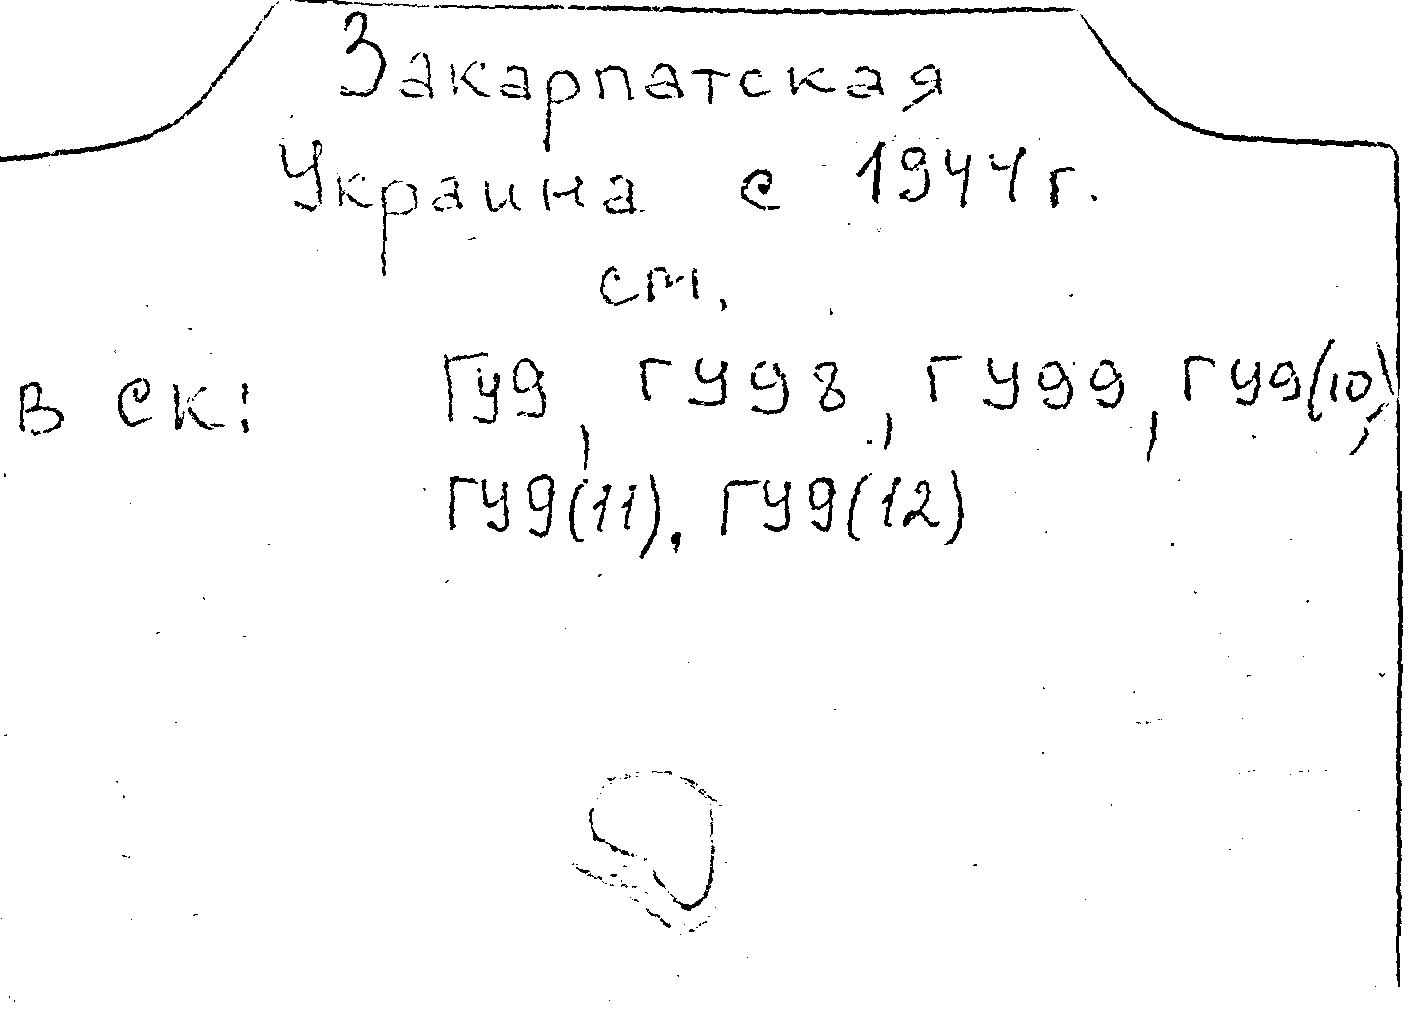 Закарпатская
Украина с 1944 г.
см.
в ск: ГУ9, ГУ98, ГУ99, ГУ9(10),
ГУ9(11), ГУ9(12)